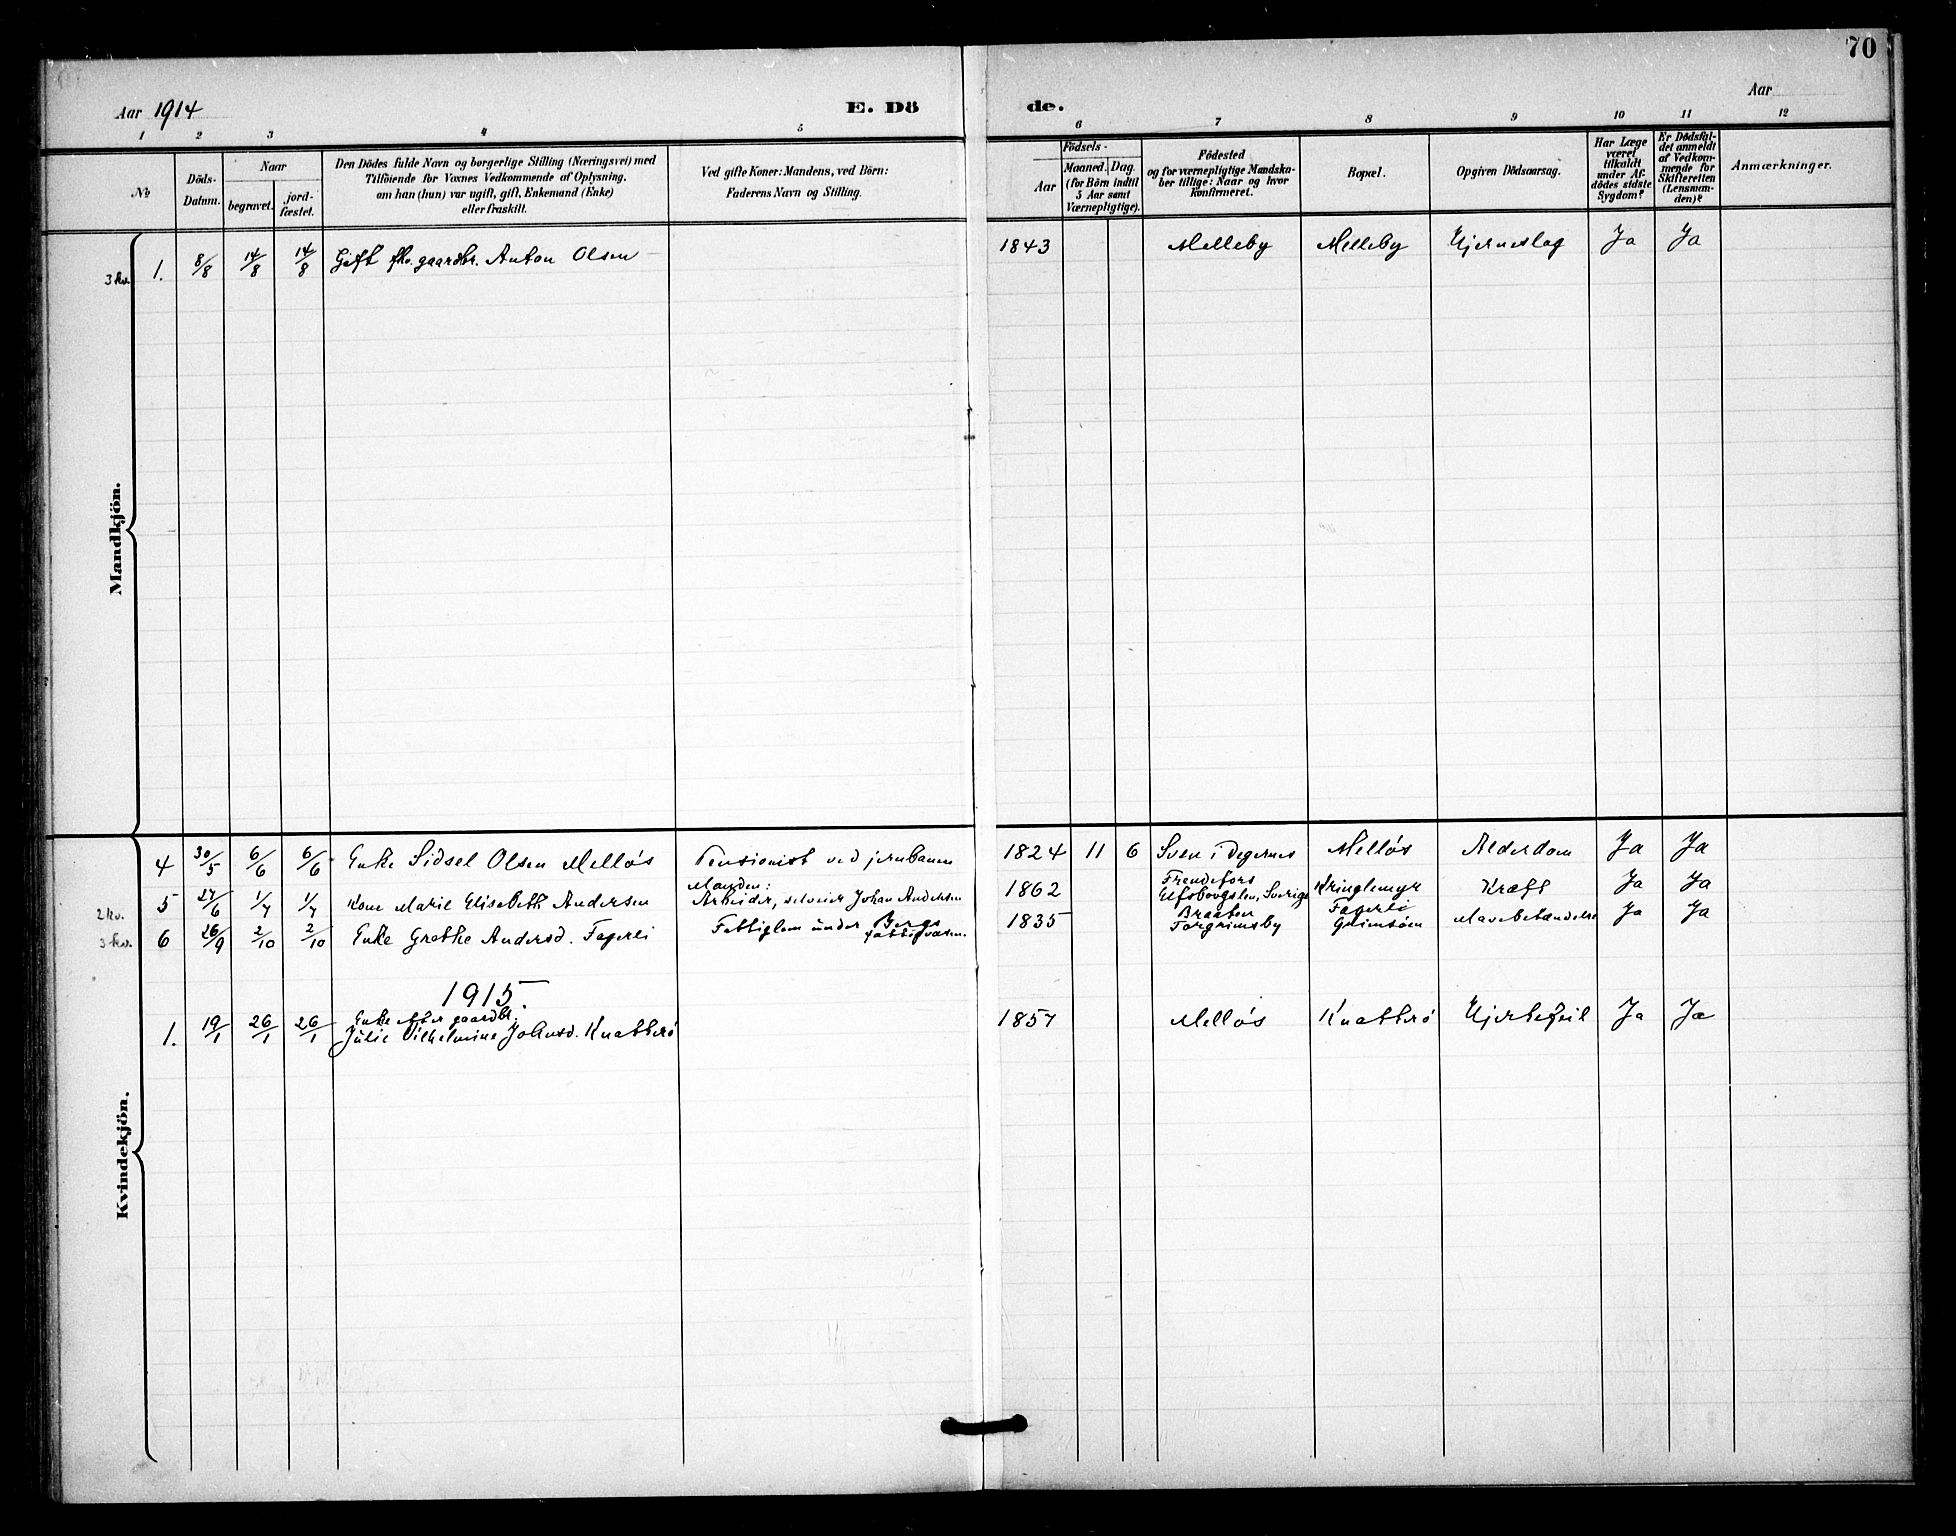 70
Aar 1914 E. Dö de. Aar
1 2 3 4 5 6 7 8 9 10 11 12
No
Döds-
Datum.
Naar
begravet.
jord-
fæstet.
Den Dödes fulde Navn og borgerlige Stilling (Næringsvei) med
Tilföiende for Voxnes Vedkommende af Oplysning,
om han (hun) var ugift, gift, Enkemand (Enke)
eller fraskilt.
Ved gifte Koner: Mandens, ved Börn:
Faderens Navn og Stilling.
Födsels-
Aar
Maaned. Dag.
(for Börn indtil
5 Aar samt
Værnepligtige).
Födested
og for værnepligtige Mandska-
ber tillige: Naar og hvor
konfirmeret.
Bopæl.
Opgiven Dödsaarsag.
Har Læge
været
tilkaldt
under Af-
dödes sidste
Sygdom?
Er Dødsfal-
det anmeldt
af Vedkom-
mende for
Skifteretten
(Lensman-
den)?
Anmærkninger.
Mandkjön.
3 kv. 1. 8/8 14/8 14/8 Gift fhv. gaardbr. Anton Olsen 1843 Melleby Melleby Hjerneslag Ja Ja
Kvindekjön.
4 30/5 6/6 6/6 Enke Sidsel Olsen Mellös Pensionist ved jernbanen 1824 11 6 Sven i Degernes Mellös Alderdom Ja Ja
Manden:
Frendefors
5 27/6 1/7 1/7 Kone Marie Elisabeth Andersen Arbeider, selveier Johan Andersen 1862 Elfsborgslen, Sverige Kringlemyr Kræft Ja Ja
2 kv.
Braaten
Fagerli
3 kv. 6 26/9 2/10 2/10 Enke Grethe Andersd. Fagerli Fattiglem under Bergs fattigvæsen. 1835 Torgrimsby Grimsöen Mavebetændelse Ja Ja
1915.
Enke efter gaardbr.
1. 19/1 26/1 26/1 Julie Vilhelmine Johnsd. Knatterö 1857 Mellös Knatterö Hjertefeil Ja Ja